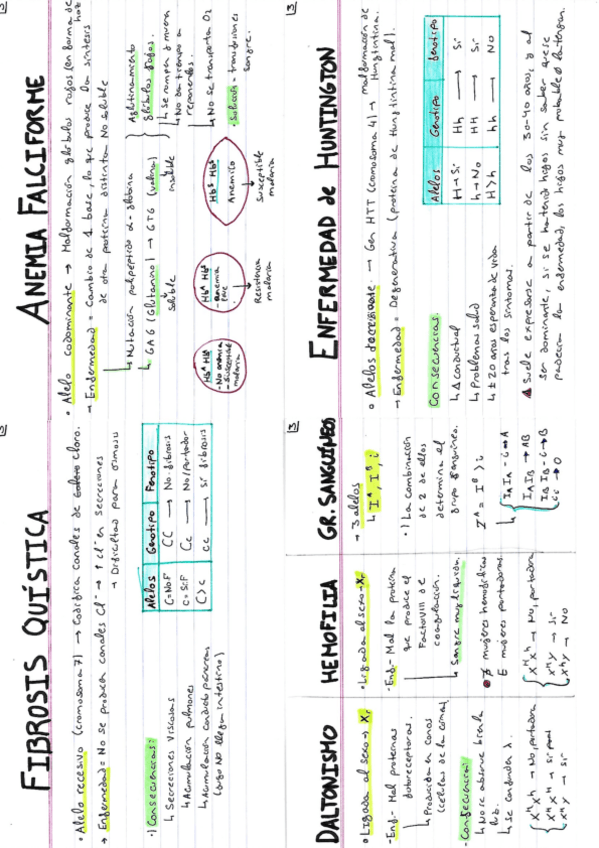 FIBROSIS QUÍSTICA
• Alelo recesivo (cromosoma 7) → Codifica canales de cloro.
→ Enfermedad = No se producen canales Cl⁻ → ↑ Cl⁻ en secreciones
→ Dificultad para osmosis
•) Consecuencias:
↳ Secreciones viscosas
↳ Acumulación pulmones
↳ Acumulación conducto páncreas
(jugo no llega intestino)
Alelos | Genotipo | Fenotipo
C = No F | CC → No fibrosis
c = Sí F | Cc → No/portador
C > c | cc → Sí fibrosis
ANEMIA FALCIFORME
• Alelo codominante → Malformación glóbulos rojos en forma de hoz
→ Enfermedad = Cambio de 1 base, lo que produce la síntesis
de otra proteína distinta no soluble
↳ Mutación polipéptido α-globina
↳ GAG (Glutamino) → GTG (valina)
soluble
insoluble
Aglutinamiento
glóbulos rojos.
↳ Se rompen y mueren
↳ No da tiempo a
reponerlos.
↳ No se transporta O₂
• Solución - transfusiones
sangre.
Hbᴬ Hbᴬ
- No anemia
- Susceptible
malaria
Hbᴬ Hbˢ
- Anemia
Resistencia
malaria
Hbˢ Hbˢ
Anémico
Susceptible
malaria
DALTONISMO
• Ligada al sexo → Xr
- Enf.- Mal proteínas
fotorreceptoras.
↳ Producida en conos
(células de la córnea)
- Consecuencia:
↳ No se absorve bien la
luz.
↳ Se confunden λ.
Xᴴ Xʰ → No, portadora
Xʰ Y → Sí
HEMOFILIA
• Ligada al sexo → Xr
- Enf.- Mal la proteína
que produce el
Factor VIII de
coagulación.
↳ Sangre muy líquida.
∄ mujeres hemofílicas
∃ mujeres portadoras.
Xᴴ Xʰ → No, portadora
GR. SANGUÍNEOS
→ 3 alelos
↳ Iᴬ, Iᴮ, i
•) La combinación
de 2 de ellos
determina el
grupo sanguíneo.
Iᴬ = Iᴮ > i
IA IA - i → A
IA IB → AB
IB IB - i → B
ii → O
ENFERMEDAD de HUNTINGTON
• Alelos → Gen HTT (cromosoma 4) → malformación de
Huntingtina.
→ Enfermedad = Degenerativa (proteína de Huntingtina mal).
Consecuencias.
↳ Δ conductual
↳ Problemas salud
↳ ± 20 años esperanza de vida
tras los síntomas.
Alelos | Genotipo | Fenotipo
H → Sí | Hh → Sí
h → No | HH → Sí
H > h | hh → No
Suele expresarse a partir de los 30-40 años, y al
ser dominante, si se ha tenido hijos sin saber que se
padecía la enfermedad, los hijos muy probable la tengan.